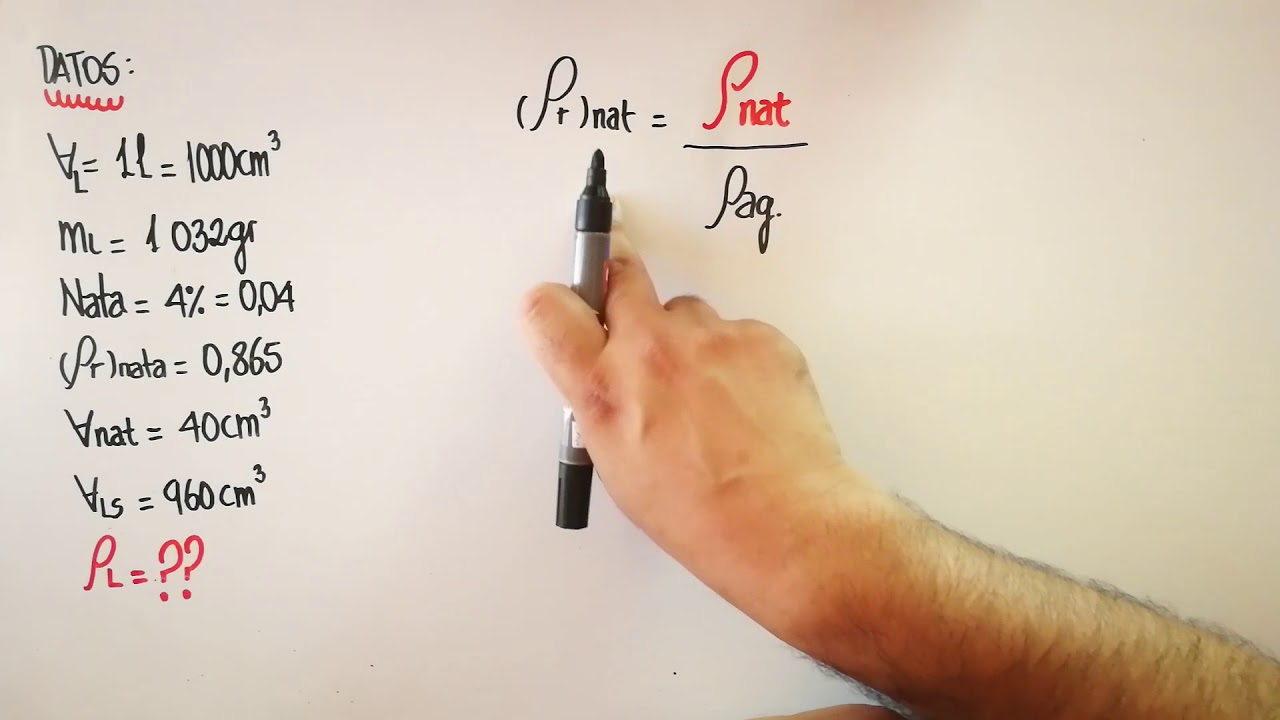 DATOS:
∀L = 1l = 1000cm³
mL = 1 032gr
Nata = 4% = 0,04
(ρr)nata = 0,865
∀nat = 40cm³
∀LS = 960cm³
ρL = ??
(ρr)nat = ρnat
ρag.